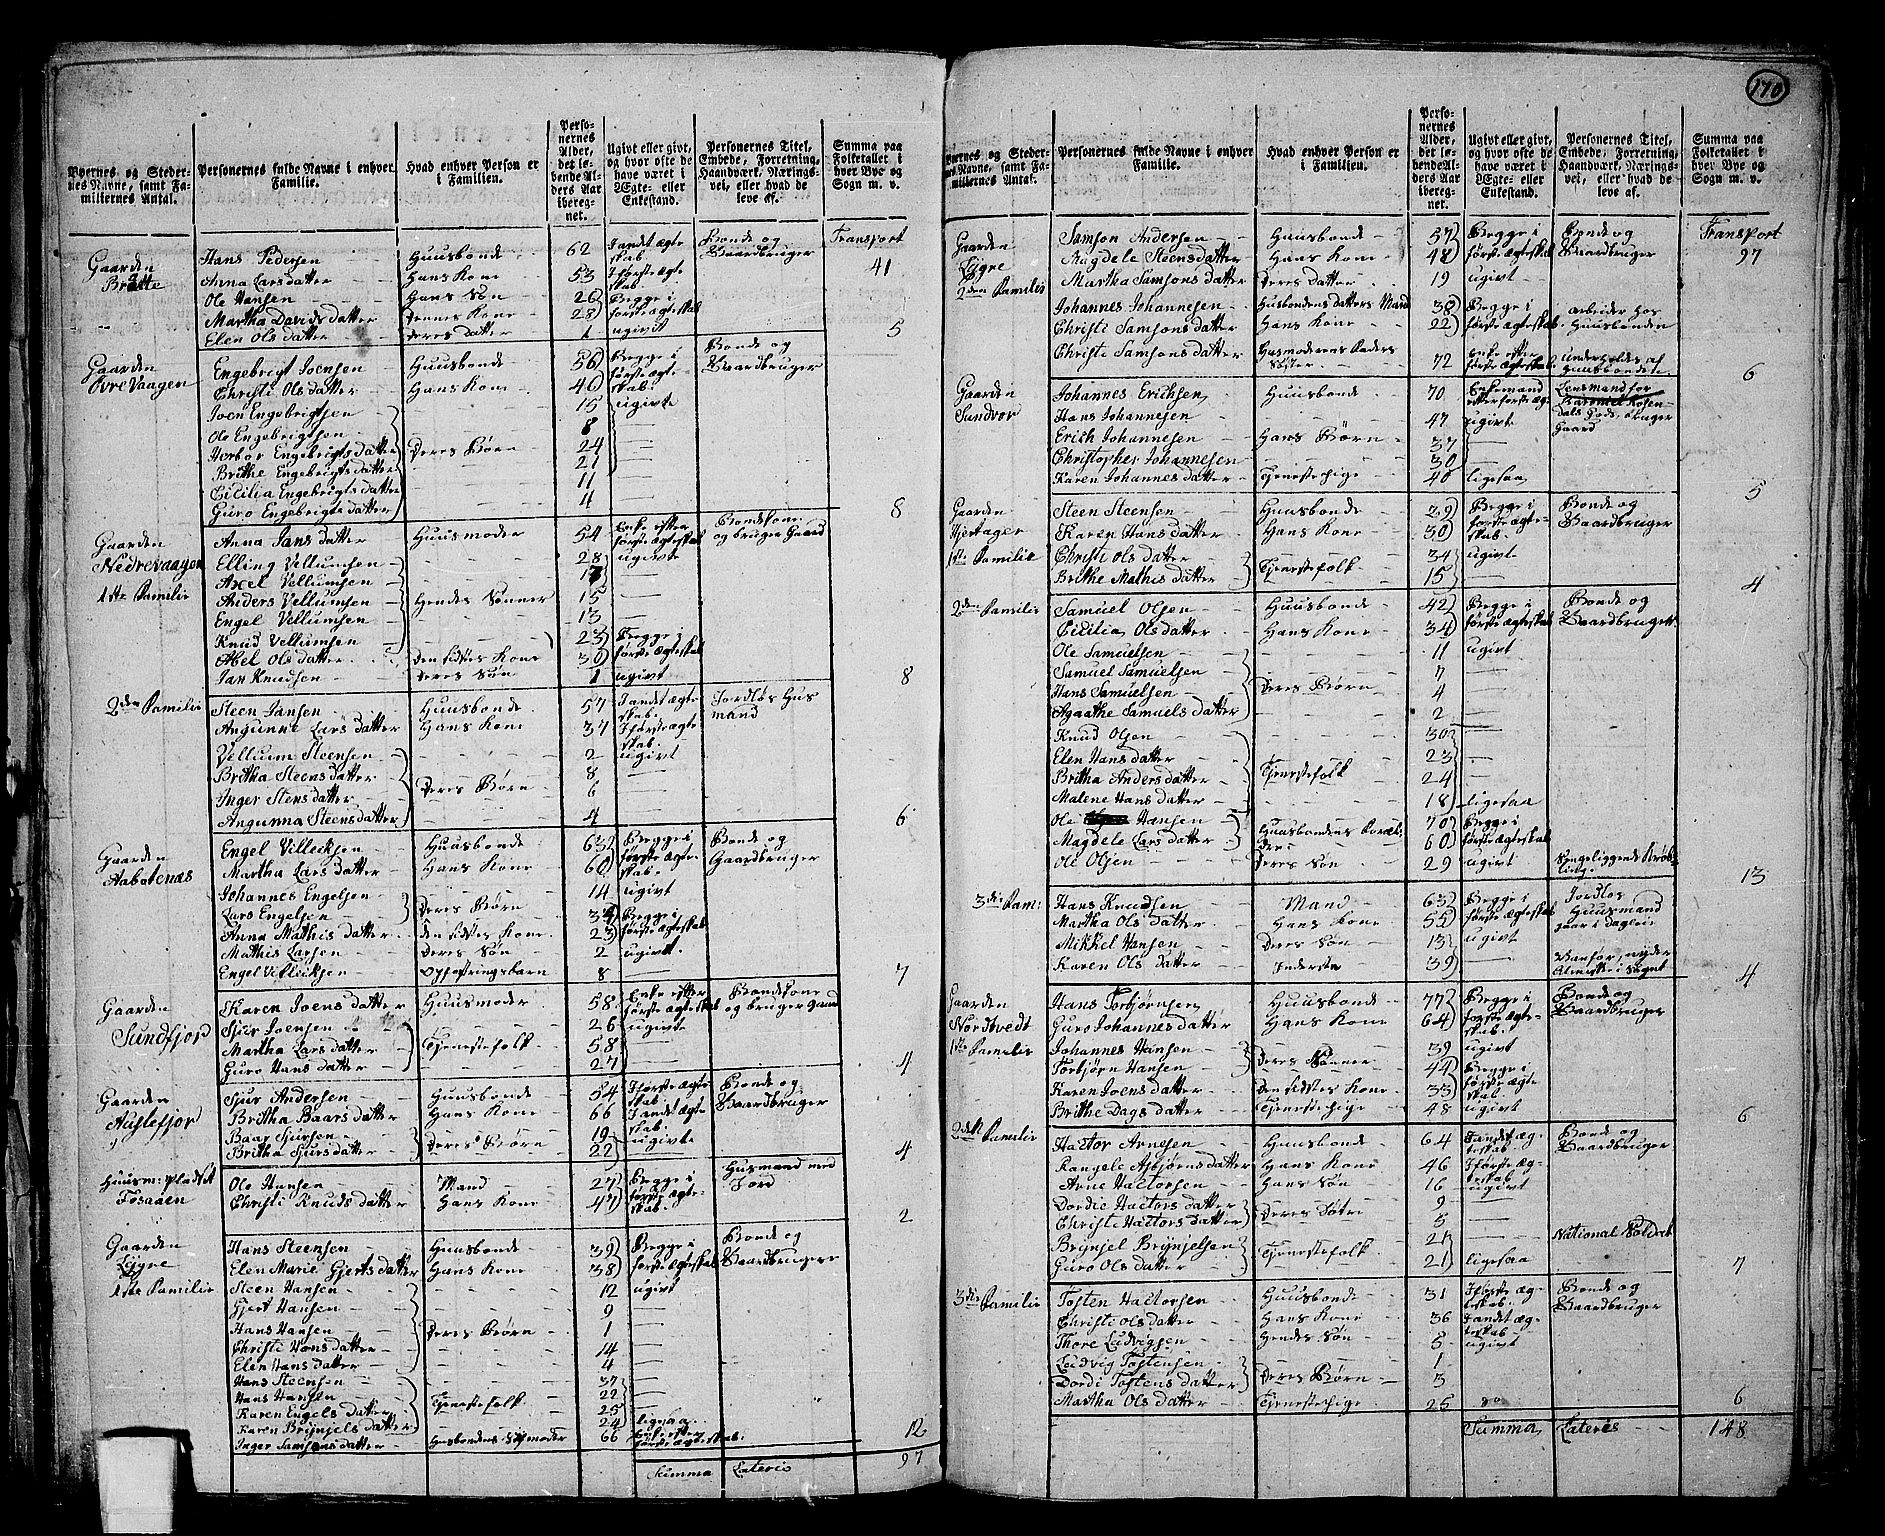 170
Byernes og Stedernes Navne, samt Familiernes Antal.
Personernes fulde Navne i enhver Familie.
Hvad enhver Person er i Familien.
Personernes Alder, det løbende Alders Aar iberegnet.
Ugivt eller givt, og hvor ofte de have været i Ægte- eller Enkestand.
Personernes Titel, Embede, Forretning, Haandværk, Næringsvei, eller hvad de leve af.
Summa paa Folketallet i hver Bye og Sogn m. v.
Transport 41
Gaarden Bratte
Hans Pedersen Huusbonde 62 I andet ægteskab Bonde og Gaardbruger
Anna Larsdatter Hans Kone 53 I første ægteskab
Ole Hansen Hans Søn 26 Begge i
Martha Davids datter Dennes Kone 28 første ægteskab
Elen Ols datter Deres datter 1 ugivt 5
Gaarden Øvre Vaagen
Engebrigt Joensen Huusbonde 56 Begge i første ægteskab Bonde og Gaardbruger
Christi Ols datter Hans Kone 40
Joen Engebrigtsen 15 ugivte
Ole Engebrigtsen 8
Herbor Engebrigts datter Deres Børn 24
Brithe Engebrigts datter 21
Cicilia Engebrigts datter 11
Guro Engebrigts datter 4 8
Gaarden Nedrevaagen
1ste Familie
Anna Jans datter Huusmoder 54 Enke efter første ægteskab Bondekone og bruger Gaard
Elling Vellumsen 28 ugivte
Axel Vellumsen 17
Anders Vellumsen Hendes Sønner 15
Engel Vellumsen 13
Knud Vellumsen 23 Begge i
Abel Ols datter Den sidstes Kone 30 første ægteskab
Jan Knudsen Deres Søn 1 ugivt 8
2den Familie
Steen Jansen Huusbonde 57 I andet ægteskab Jordløs Husmand
Angunne Lars datter Hans Kone 37 I første ægteskab
Vellum Steensen 2 ugivt
Britha Steens datter Deres Børn 8
Inger Stens datter 6
Angunna Steens datter 4 6
Gaarden Aabotenæs
Engel Villecksen Huusbonde 63 Begge i Bonde og Gaardbruger
Martha Lars datter Hans Kone 60 første ægteskab
Johannes Engelsen 14 ugivt
Lars Engelsen Deres Børn 34 Begge i
Anna Mathis datter Den sidstes Kone 23 første ægteskab
Mathis Larsen Deres Søn 2 ugivt
Engel Villecksen Opfostringsbarn 8 7
Gaarden Sundfjord
Karen Joens datter Huusmoder 58 Enke efter første ægteskab Bondekone og bruger Gaard
Sjur Joensen 26 ugivt
Martha Lars datter Tjenestefolk 58
Guro Hans datter 27 4
Gaarden Auslefjord
Sjur Andersen Huusbonde 54 I første ægteskab Bonde og Gaardbruger
Britha Baars datter Hans Kone 66 I andet ægteskab
Baar Sjursen Deres Børn 19 ugivte
Britha Sjurs datter 22 4
Huusm: pladset Tosaaen
Ole Hansen Mand 27 Begge i første ægteskab Husmand med Jord
Christi Knuds datter Hans Kone 47 2
Gaarden Lygre
1ste Familie
Hans Steensen Huusbonde 39 Begge i Bonde og Gaardbruger
Elen Marie Gjerts datter Hans Kone 38 første ægteskab
Steen Hansen 12 ugivt
Gjert Hansen 9
Hans Hansen Deres Børn 1
Christi Hans datter 14
Elen Hans datter 4
Hans Steensen 37
Hans Hansen 22
Karen Engels datter Tjenestefolk 25
Karen Brynjels datter 24 ligesaa
Inger Samsons datter Husbondens Stifmoder 66 Enke efter første ægteskab 12
Summa Lateris 97
Byernes og Stedernes Navne, samt Familiernes Antal.
Personernes fulde Navne i enhver Familie.
Hvad enhver Person er i Familien.
Personernes Alder, det løbende Alders Aar iberegnet.
Ugivt eller givt, og hvor ofte de have været i Ægte- eller Enkestand.
Personernes Titel, Embede, Forretning, Haandværk, Næringsvei, eller hvad de leve af.
Summa paa Folketallet i hver Bye og Sogn m. v.
Transport 97
Gaarden Lygre
2den Familie
Samson Andersen Huusbonde 57 Begge i Bonde og Gaardbruger
Magdele Steensdatter Hans Kone 48 første ægteskab
Martha Samsons datter Deres datter 19 ugivt
Johannes Johannesen Husbondens datters Mand 38 Begge i arbeider hos
Christi Samsons datter Hans Kone 22 første ægteskab Huusbonden
Christi Samsons datter Husmoderens Faders Søster 72 Enke efter første ægteskab underholdes af Huusbonden 6
Gaarden Sundvor
Johannes Erichsen Huusbonde 70 Enkemand efter første æg: Lensmand for Baroniet Rosendals Gods. bruger Gaard
Hans Johannesen 47 ugivt
Erich Johannesen Hans Børn 37
Christopher Johannesen 30
Karen Johannes datter Tjenestepige 40 ligesaa 5
Gaarden Hjertager
1ste Familie
Steen Steensen Huusbonde 29 Begge i Bonde og Gaardbruger
Karen Hans datter Hans Kone 30 første ægteskab
Christi Ols datter Tjenestefolk 34 ugivt
Brithe Mathis datter 15 4
2den Familie
Samuel Olsen Huusbonde 42 Begge i Bonde og Gaardbruger
Cicilia Ols datter Hans Kone 34 første ægteskab
Ole Samuelsen 11 ugivt
Samuel Samuelsen 7
Hans Samuelsen Deres Børn 4
Agaathe Samuels datter 2
Knud Olsen 30
Elen Hans datter 23
Britha Anders datter Tjenestefolk 24
Malene Hans datter 18 ligesaa
Ole Hansen Huusbondens Foræl: 70 Begge i
Magdele Lars datter dre 60 første ægteskab
Ole Olsen Deres Søn 29 ugivt Sengeliggende Krøbling. 13
3die Fam:
Hans Knudsen Mand 63 Begge i Jordløs Huusmand
Martha Ols datter Hans Kone 55 første ægteskab
Mikkel Hansen Deres Søn 13 ugivt
Karen Ols datter Inderste 39 Vanfør, nyder Almisse i Sognet 4
Gaarden Nordtvedt
1ste Familie
Hans Torbjørnsen Huusbonde 77 Begge i Bonde og Gaardbruger
Guro Johannes datter Hans Kone 64 første ægteskab
Johannes Hansen Deres Sønner 39 ugivt
Torbjørn Hansen 44 Begge i
Karen Joens datter Den sidstes Kone 33 første ægteskab
Brithe Dags datter Tjenestepige 48 ugivt 6
2den Familie
Hactor Arnesen Huusbonde 64 I andet ægteskab Bonde og Gaardbruger
Rangele Asbjørns datter Hans Kone 46 I første ægteskab
Arne Hactorsen Hans Søn 16 ugivt
Dordie Hactors datter Deres Døtre 9
Christi Hactors datter 5
Brynjel Brynjelsen Tjenestefolk 21 National Soldat
Guro Ols datter 21 ligesaa 7
3die Familie
Tosten Hactorsen Huusbonde 31 I første ægteskab Bonde og Gaardbruger
Christi Ols datter Hans Kone 36 I andet ægteskab
Thore Ludvigsen Hendes Søn 5 ugivt
Ludvig Tostensen Deres Børn 1
Dordi Tostens datter 3
Martha Ols datter Tjenestepige 25 do 6
Summa Lateris 148